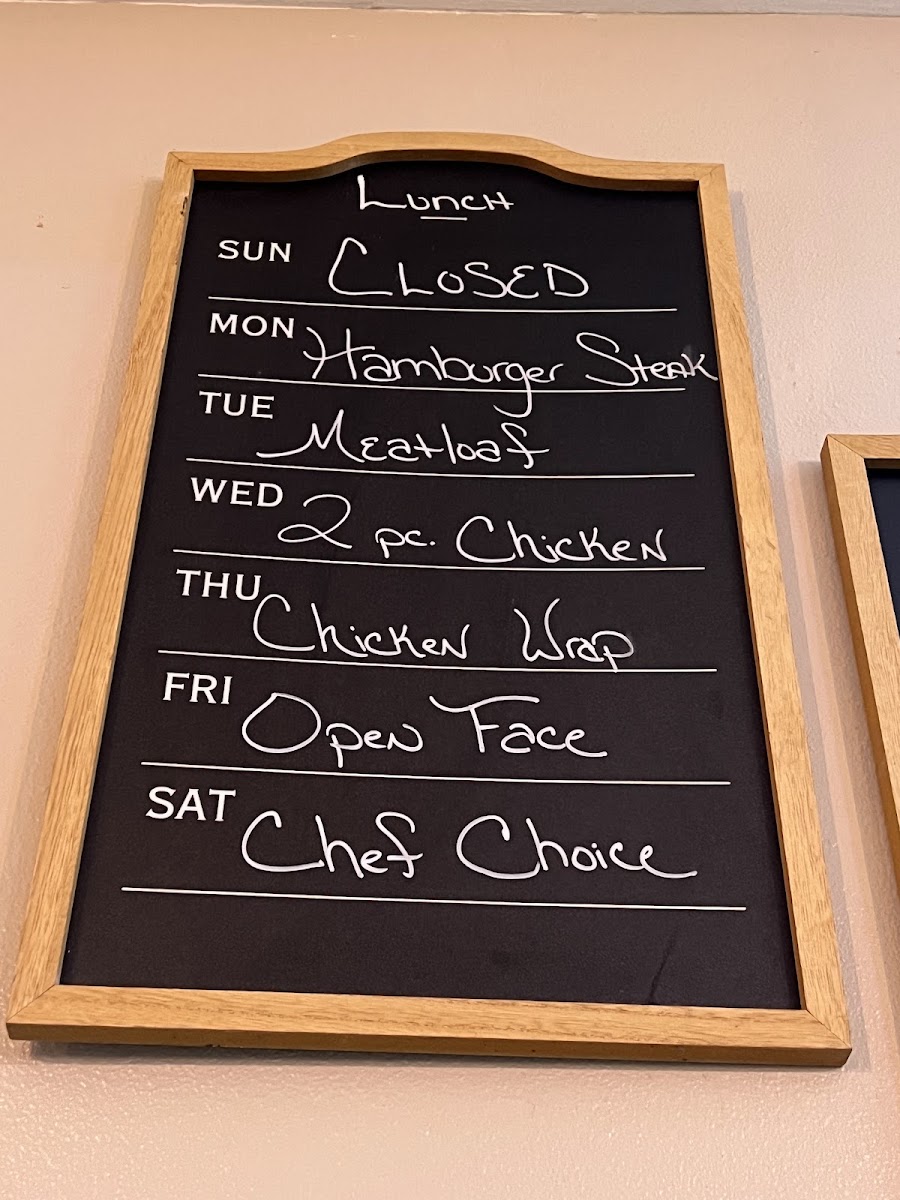 Lunch
SUN Closed
MON Hamburger Steak
TUE Meatloaf
WED 2 pc. Chicken
THU Chicken Wrap
FRI Open Face
SAT Chef Choice